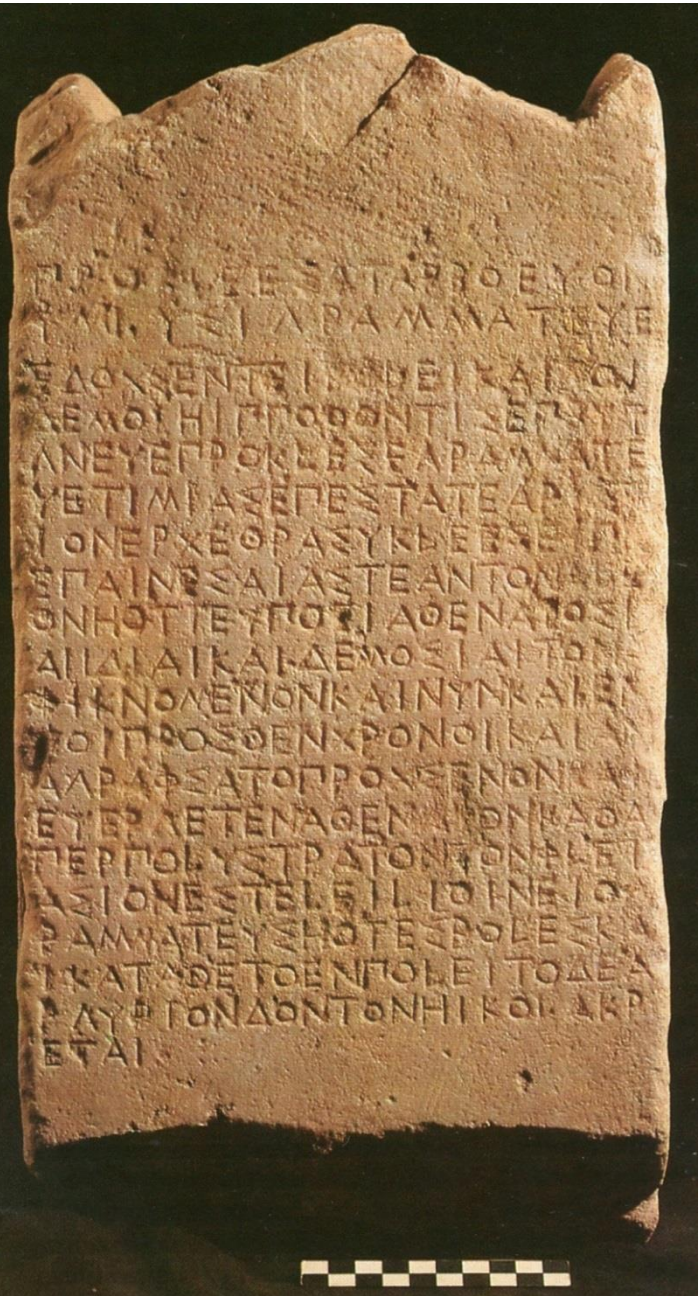 ΠΡΟΚΛΕΕΣΑΤΑΡΒΟΕΥΟΝ
ΥΜΕΥΣΕΓΡΑΜΜΑΤΕΥΕ
ΕΔΟΧΣΕΝΤΕΙΒΟΛΕΙΚΑΙΤΟΙ
ΔΕΜΟΙΗΙΠΠΟΘΟΝΤΙΣΕΠΡΥΤ
ΑΝΕΥΕΠΡΟΚΛΕΕΣΕΓΡΑΜΜΑΤΕ
ΥΕΤΙΜΙΑΣΕΠΕΣΤΑΤΕΑΡΙΣΤ
ΙΟΝΕΡΧΕΘΡΑΣΥΚΛΕΕΣΕΙΠΕ
ΕΠΑΙΝΕΣΑΙΑΣΤΕΑΝΤΟΝΑΛΕ
ΟΝΗΟΤΙΕΥΠΟΕΙΑΘΕΝΑΙΟΣΚ
ΑΙΙΔΙΑΙΚΑΙΔΕΜΟΣΙΑΙΤΟΝΑ
ΦΙΚΝΟΜΕΝΟΝΚΑΙΝΥΝΚΑΙΕΝ
ΤΟΙΠΡΟΣΘΕΝΧΡΟΝΟΙΚΑΙΑΝ
ΑΓΡΑΦΣΑΤΟΠΡΟΧΣΕΝΟΝΚΑΙ
ΕΥΕΡΓΕΤΕΝΑΘΕΝΑΙΟΝΚΑΘΑ
ΠΕΡΠΟΛΥΣΤΡΑΤΟΝΤΟΝΦΛΕΙ
ΑΣΙΟΝΕΣΤΕΛΕΙΛΙΘΙΝΕΙΟΓ
ΡΑΜΜΑΤΕΥΣΗΟΤΕΣΒΟΛΕΣΚΑ
ΙΚΑΤΑΘΕΤΟΕΝΠΟΛΕΙΤΟΔΕΑ
ΡΓΥΡΙΟΝΔΟΝΤΟΝΗΙΚΟΛΑΚΡ
ΕΤΑΙ